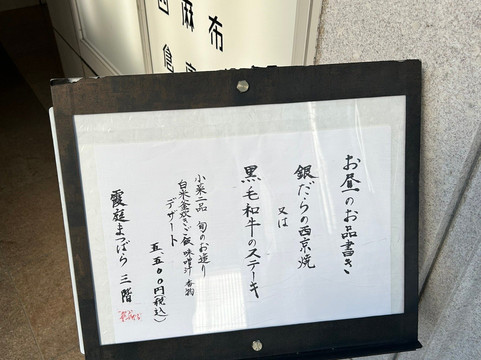 麻布
お昼のお品書き
銀だらの西京焼
又は
黒毛和牛のステーキ
小菜二品 旬のお造り
白米釜炊きご飯 味噌汁 香物
デザート
五、五〇〇円(税込)
霞庭まつばら 三階